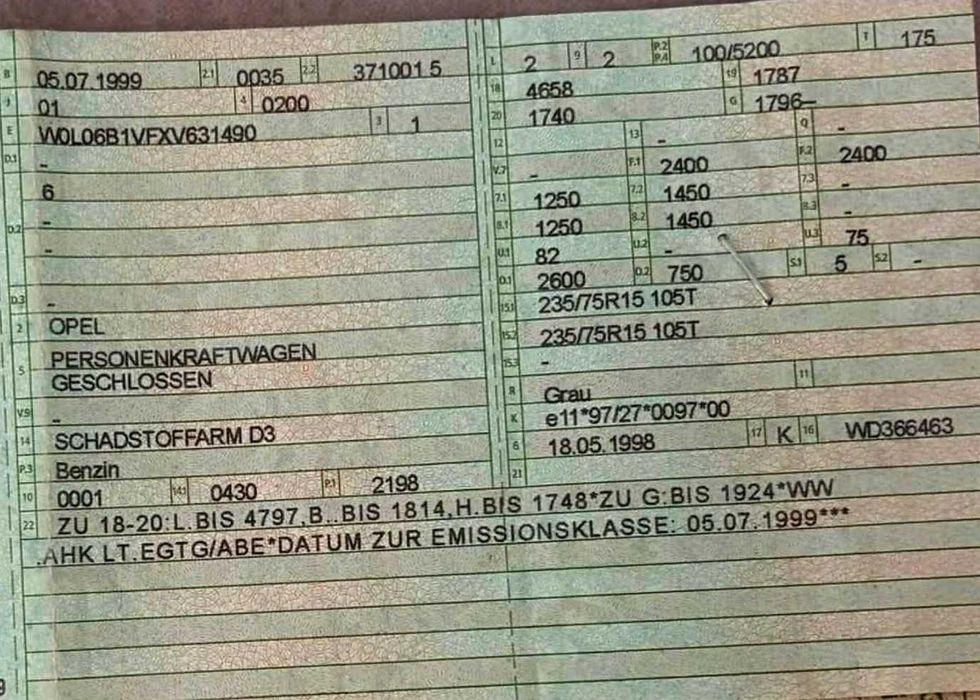 B 05.07.1999 2.1 0035 2.2 371001 5
J 01 4 0200
E W0L06B1VFXV631490 3 1
D.1 -
6
D.2 -
-
D.3 -
2 OPEL
5 PERSONENKRAFTWAGEN
GESCHLOSSEN
V.9 -
14 SCHADSTOFFARM D3
P.3 Benzin
10 0001 14.1 0430 P.1 2198
L 2 9 2 P.2 P.4 100/5200 T 175
18 4658 19 1787
20 1740 G 1796-
12 - 13 - Q -
V.7 - F.1 2400 F.2 2400
7.1 1250 7.2 1450 7.3 -
8.1 1250 8.2 1450 8.3 -
U.1 82 U.2 - U.3 75
O.1 2600 O.2 750 S.1 5 S.2 -
15.1 235/75R15 105T
15.2 235/75R15 105T
15.3 -
R Grau 11
K e11*97/27*0097*00
6 18.05.1998 17 K 16 WD366463
21
22 ZU 18-20:L.BIS 4797,B..BIS 1814,H.BIS 1748*ZU G:BIS 1924*WW
.AHK LT.EGTG/ABE*DATUM ZUR EMISSIONSKLASSE: 05.07.1999***
9